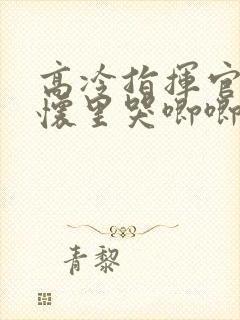 高冷指揮官
懷里哭唧唧
青黎